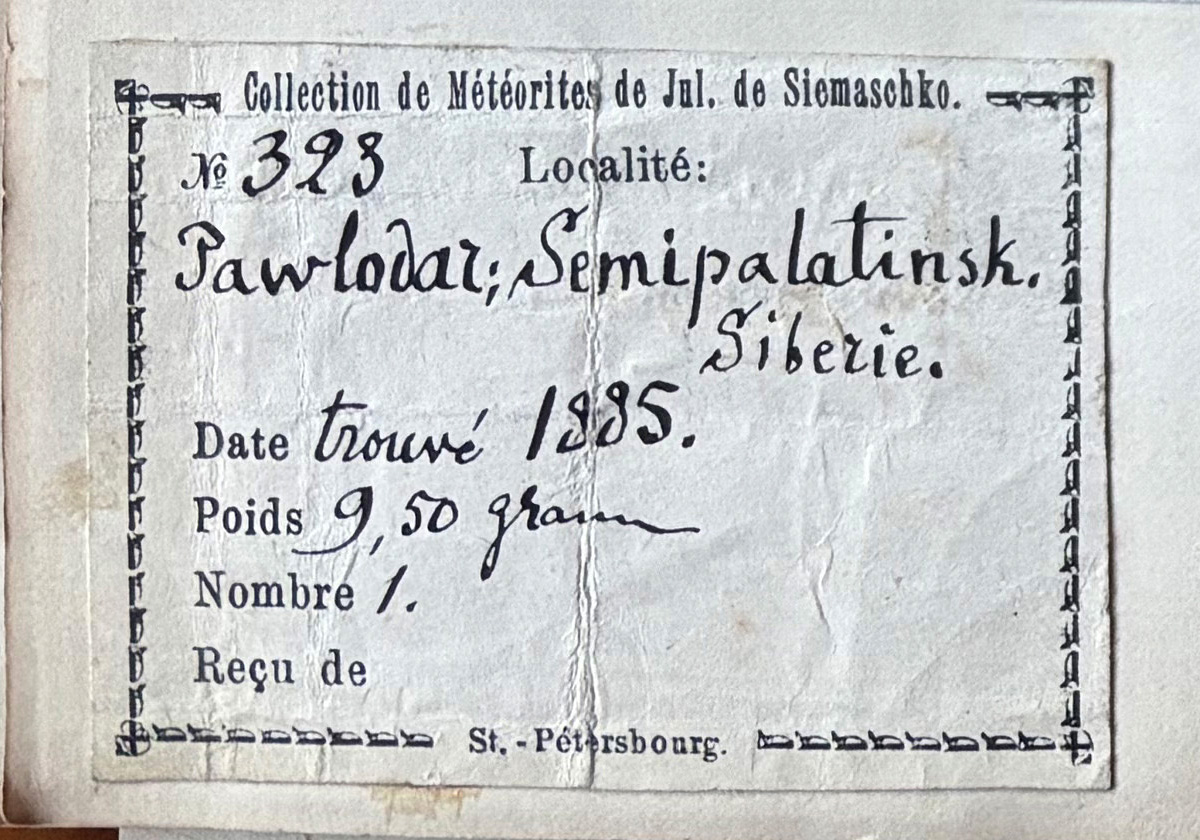 Collection de Météorites de Jul. de Siemaschko.
№ 323 Localité:
Pawlodar; Semipalatinsk.
Siberie.
Date trouvé 1885.
Poids 9,50 gramm
Nombre 1.
Reçu de
St.-Pétersbourg.